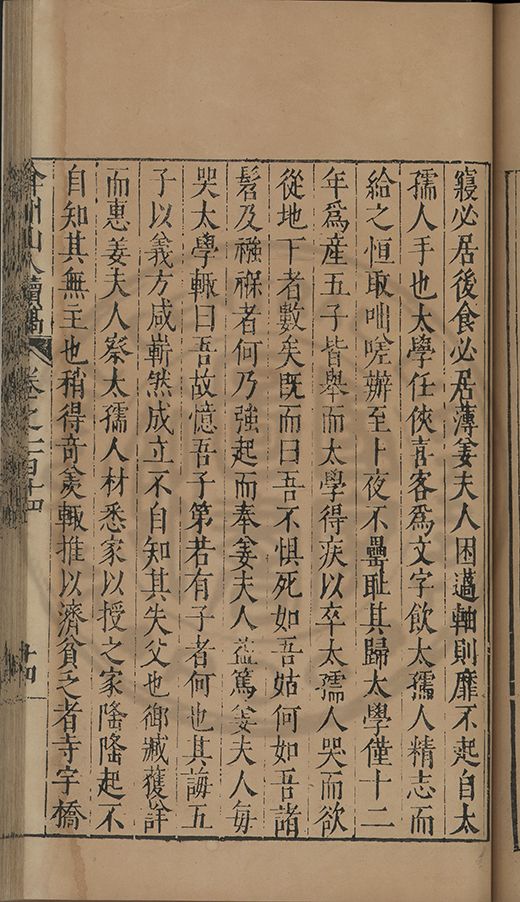 寢必居後食必居薄姜夫人困薖軸則靡不起自太
孺人手也太學任俠喜客爲文字飲太孺人精志而
給之恒取咄嗟辦至卜夜不罍耻其歸太學僅十二
年爲產五子皆舉而太學得疾以卒太孺人哭而欲
從地下者數矣既而曰吾不惧死如吾姑何如吾諸
髫及襁褓者何乃強起而奉姜夫人益篤姜夫人每
哭太學輙曰吾故憶吾子第若有子者何也其誨五
子以義方咸嶄然成立不自知其失父也御臧獲詳
而惠姜夫人察太孺人材悉家以授之家隆隆起不
自知其無主也稍得奇羨輙推以濟貧乏者寺宇橋
弇州山人續稿 卷之一百十四 十四